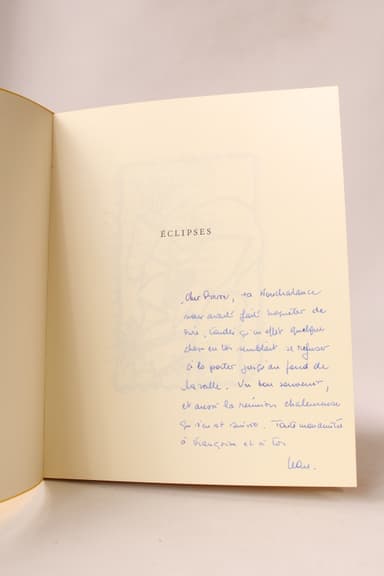 ÉCLIPSES
Cher Pierre, ta Nonchalance
nous avait fait
rire, tandis qu'en effet quelque
chose en toi semblait se refuser
à la porter jusqu'au fond de
la salle. Un bon souvenir,
et aussi la réunion chaleureuse
qui s'en est suivie. Toute mon amitié
à Françoise et à toi